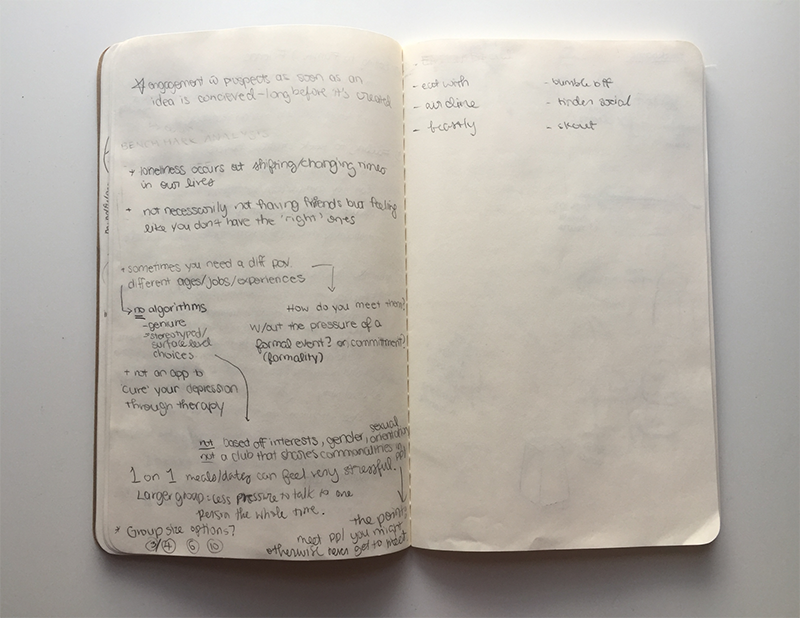 engagement w prospects as soon as an
idea is conceived - long before it's created
BENCHMARK ANALYSIS
+ loneliness occurs at shifting/changing times
in our lives
+ not necessarily not having friends but feeling
like you don't have the 'right' ones
+ sometimes you need a diff pov.
different ages/jobs/experiences
no algorithms
- genuine
- stereotypical/
surface level
choices
How do you meet them?
w/out the pressure of a
formal event? or commitment?
(formality)
+ not an app to
'cure' your depression
through therapy
not based off interests, gender, sexual orientation
not a club that shares commonalities in ppl
1 on 1 meals/dates can feel very stressful.
Larger group = less pressure to talk to one
person the whole time.
* Group size options?
3/4 6 10
the point:
meet ppl you might
otherwise never get to meet
- eat with
- airdine
- bumble bff
- tinder social
- skout